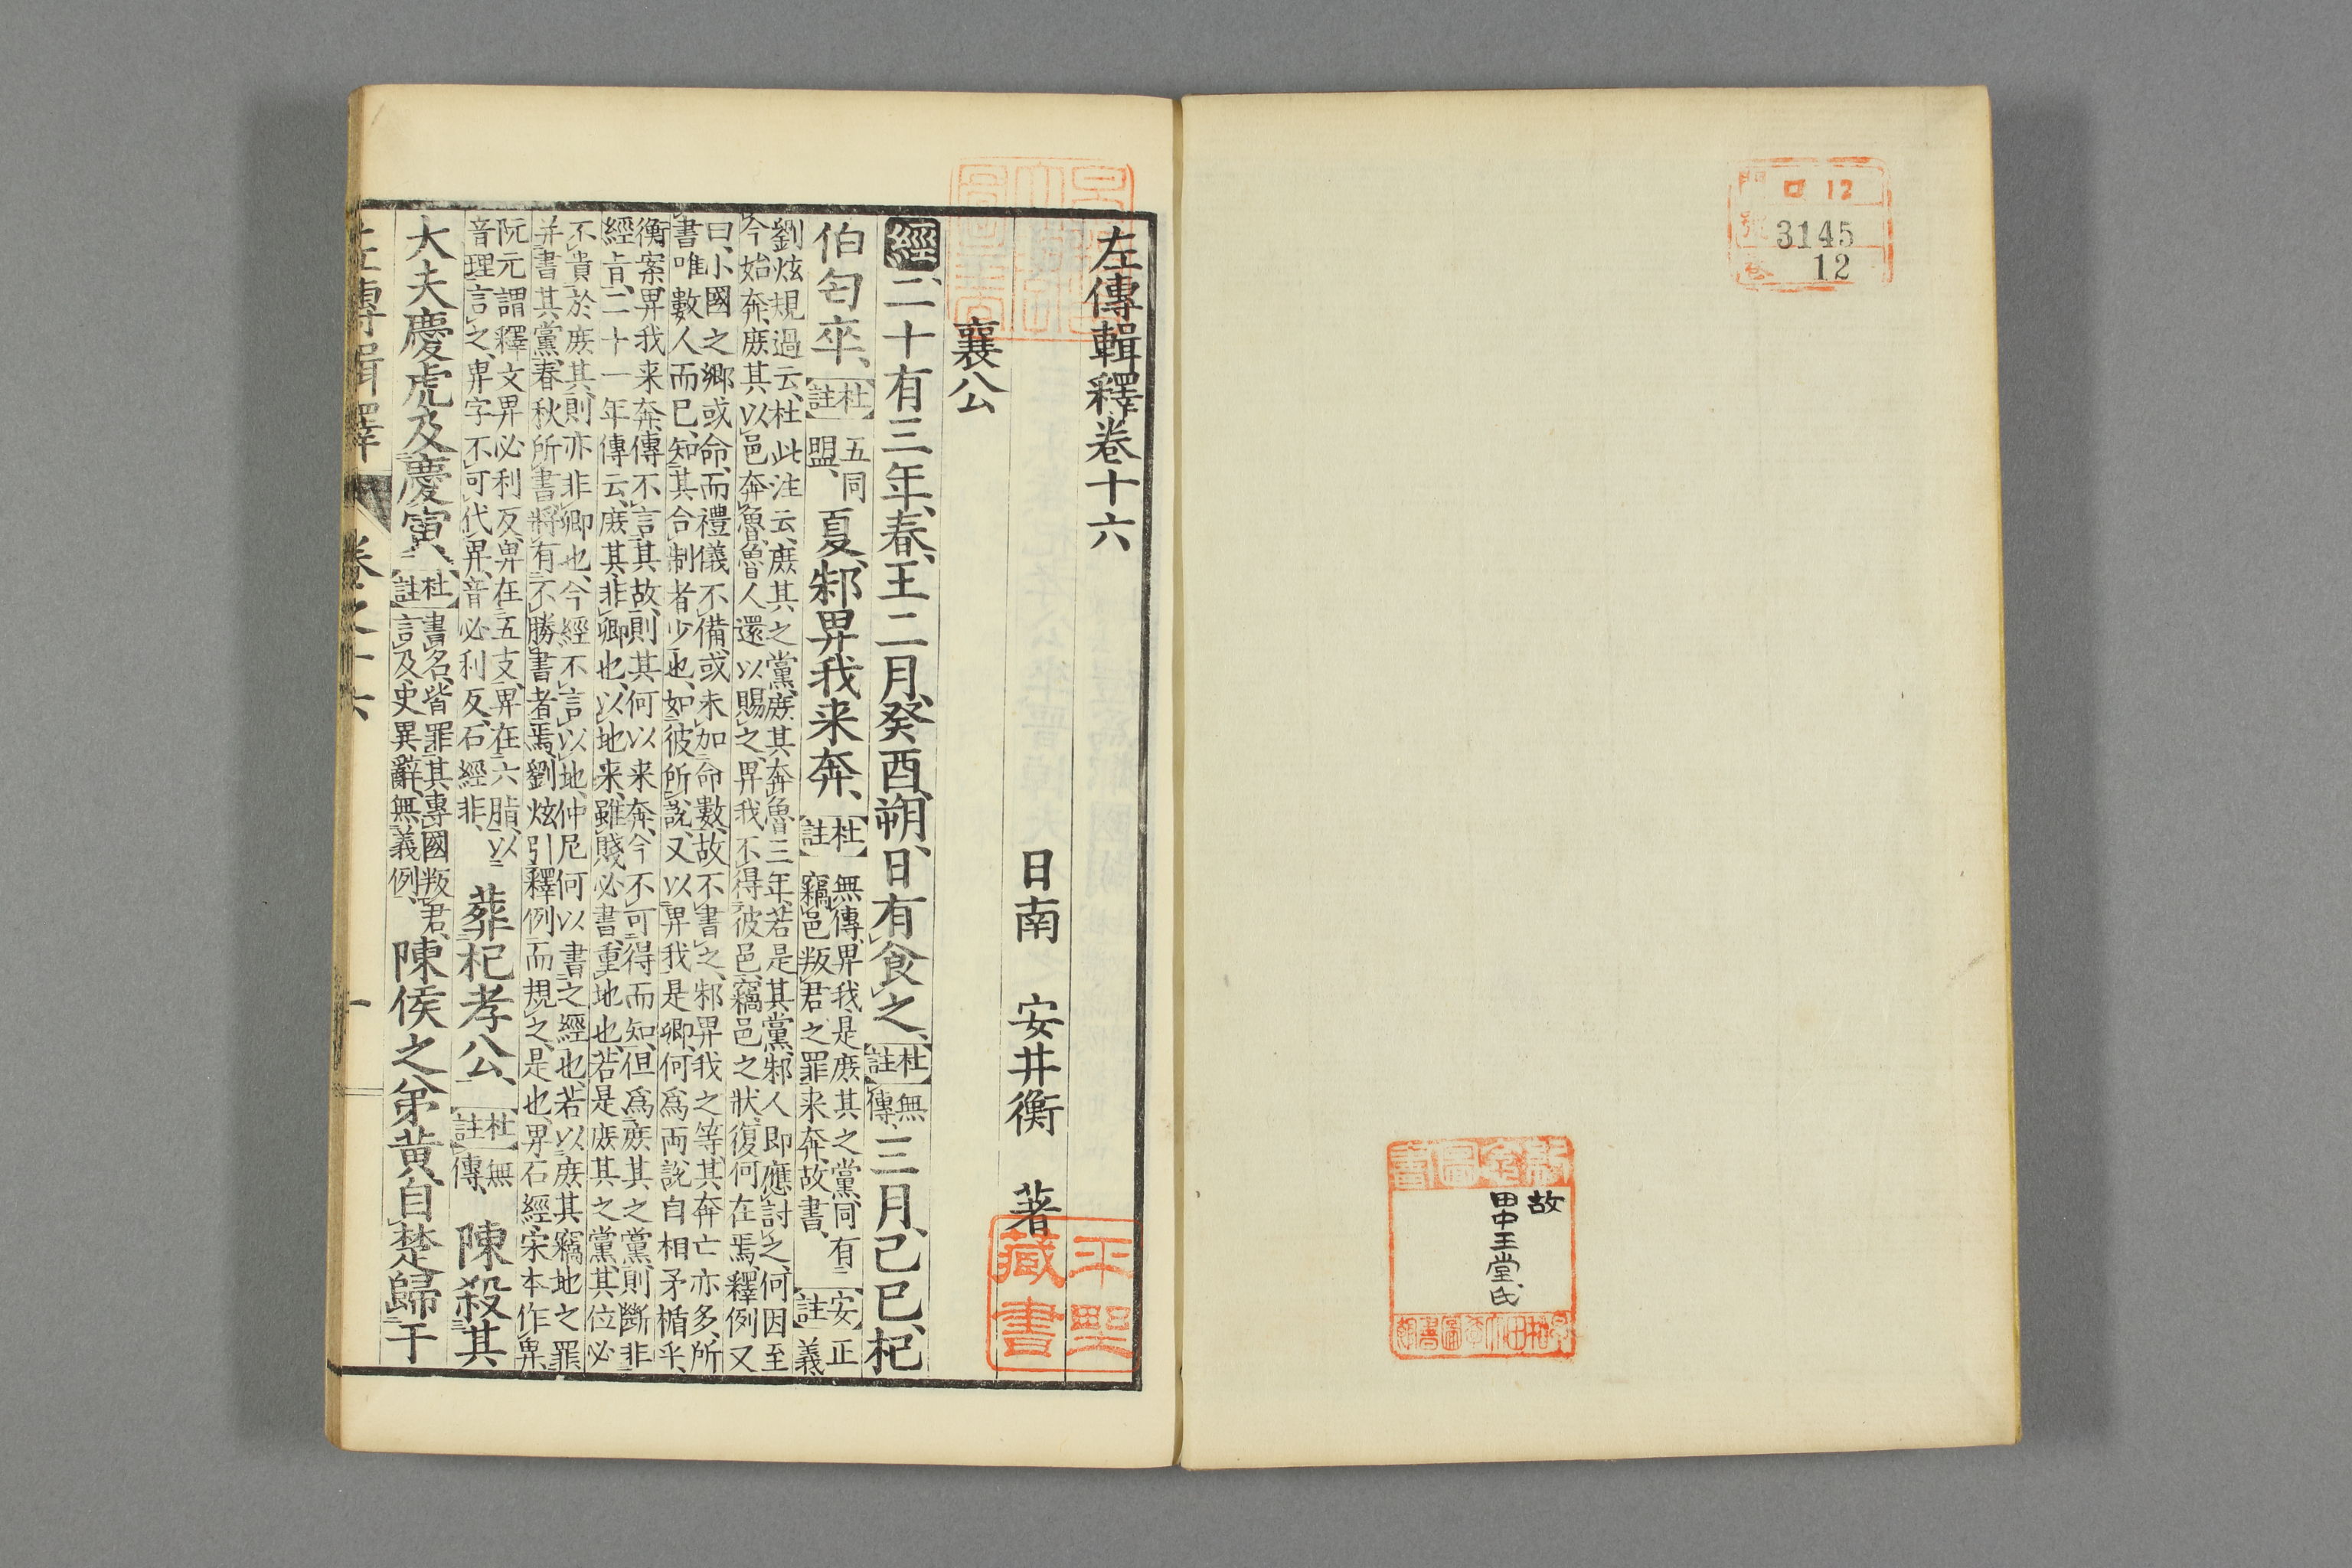 門 ロ 12
號 3145
卷 12
故
田中王堂氏
左傳輯釋卷十六
日南 安井衡 著
襄公
經二十有三年、春、王二月、癸酉朔、日有食之、【杜註】無傳、三月、己巳、杞
伯匄卒、【杜註】五同盟、夏、邾畀我來奔、【杜註】無傳、畀我是庶其之黨、同有竊邑叛君之罪、來奔、故書、【安註】正義
劉炫規過云、杜此注云、庶其之黨、庶其奔魯三年、若是其黨、邾人即應討之、何因至
今始奔、庶其以邑奔魯、魯人還以賜之、畀我不得彼邑、竊邑之狀、復何在焉、釋例又
曰、小國之卿、或命而禮儀不備、或未加命數、故不書之、邾畀我之等、其奔亡亦多、所
書唯數人而已、知其合制者少也、如彼所說、又以畀我是卿、何爲兩說自相矛楯乎、
衡案、畀我來奔、傳不言其故、則其何以來奔、今不可得而知、但爲庶其之黨、則斷非
經旨、二十一年傳云、庶其非卿也、以地來、雖賤必書、重地也、若是庶其之黨、其位必
不貴於庶其、則亦非卿也、今經不言以地、仲尼何以書之經也、若以庶其竊地之罪
并書其黨、春秋所書將有不勝書者焉、劉炫引釋例而規之、是也、畀石經宋本作卑、
阮元謂釋文畀必利反、卑在五支、畀在六脂、以
音理言之、卑字不可代畀、音必利反、石經非、葬杞孝公、【杜註】無傳、陳殺其
大夫慶虎及慶寅、【杜註】書名、皆罪其專國叛君、言及、史異辭、無義例、陳侯之弟黃、自楚歸于
左傳輯釋 卷之十六 一
平野藏書